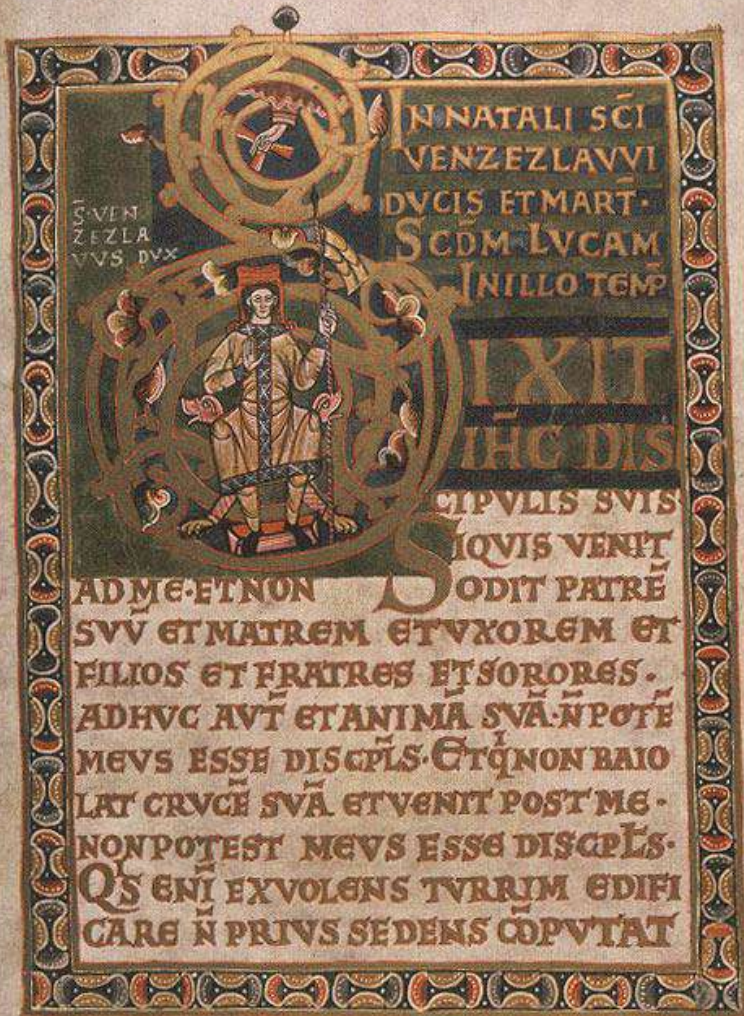 S̄·VEN
ZEZLA
VVS DVX
IN NATALI SC̄I
VENZEZLAVVI
DVCIS ET MART̄·
SCD̄M LVCAM
IN ILLO TEMP̄
IXIT
IH̄C DIS
CIPVLIS SVIS
SIQVIS VENIT
AD ME·ET NON ODIT PATRĒ
SVV̄ ET MATREM ET VXOREM ET
FILIOS ET FRATRES ET SORORES.
ADHVC AVT̄ ET ANIMĀ SVĀ·N̄ POTĒ
MEVS ESSE DISCPL̄S·ET qͥ NON BAIO
LAT CRVCĒ SVĀ ET VENIT POST ME·
NON POTEST MEVS ESSE DISCIPL̄S·
QͥS ENĪ EX VOLENS TVRRIM EDIFI
CARE N̄ PRIVS SEDENS CŌPVTAT